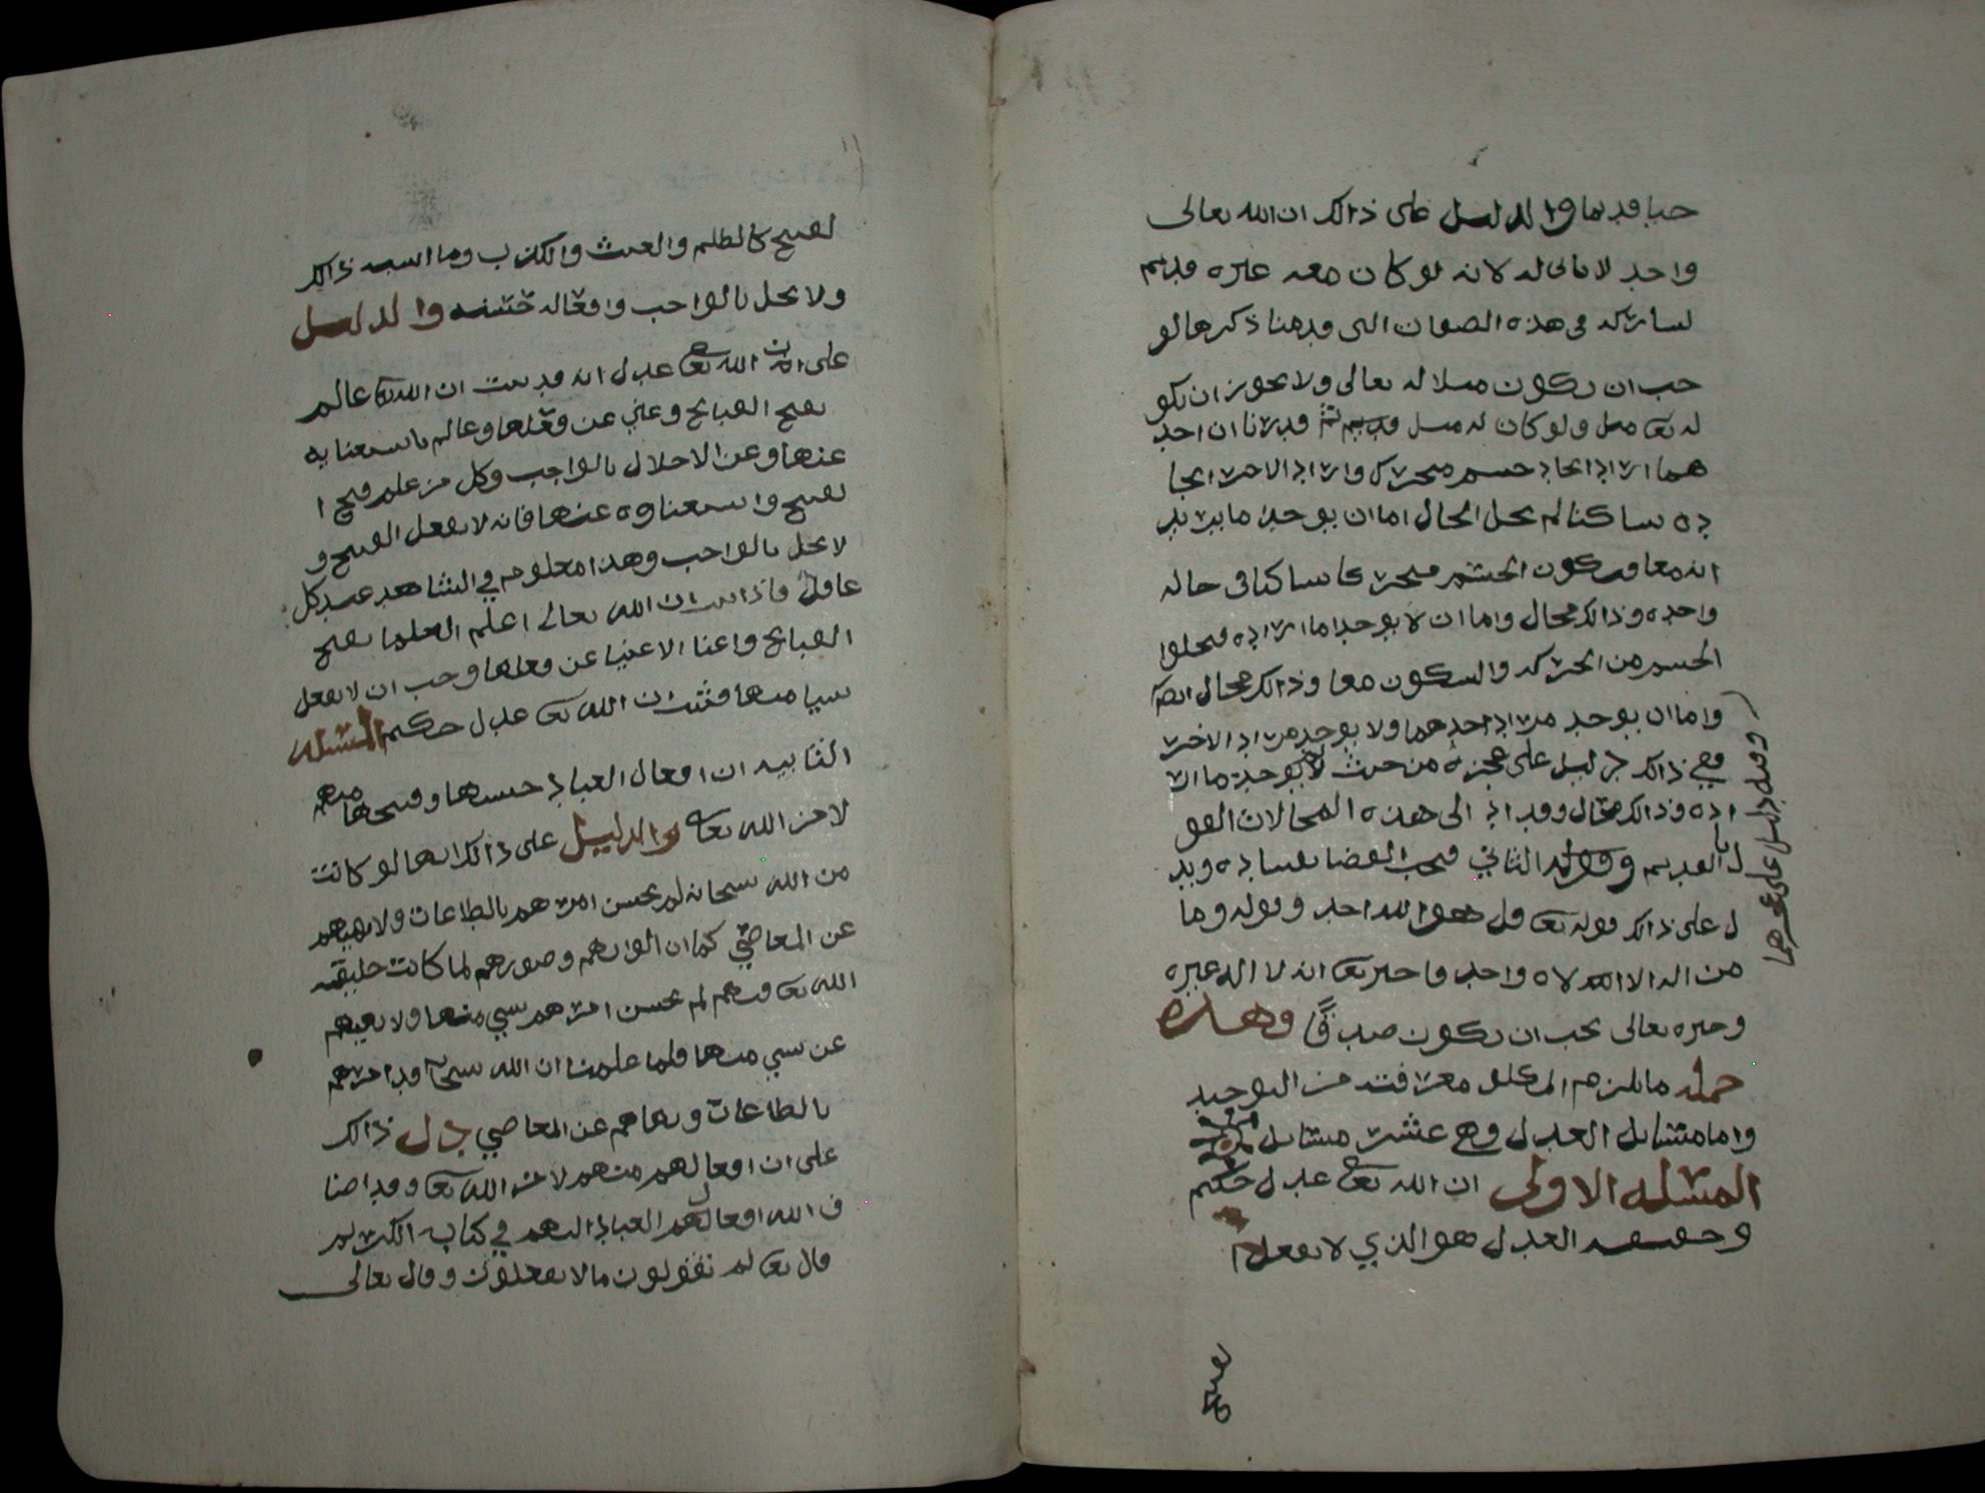 حيا قديما والدليل على ذالك ان الله تعالى
واحد لا ثاني له لانه لو كان معه غيره قديم
لشاركه في هذه الصفات التي قدمنا ذكرها لو
جب ان يكون مثلا له تعالى ولا يجوز ان يكو
له تعا مثل ولو كان له مثل قديم ثم قدرنا ان احد
هما اراد ايجاد جسم متحرك واراد الاخر ايجا
ده ساكنا لم يخل الحال اما ان يوجد ما يريد
انه معا فيكون الجسم متحركا ساكنا في حالة
واحده وذالك محال واما ان لا يوجد اما اراده فيخلوا
الجسم من الحركه والسكون معا وذالك محال ايضا
واما ان يوجد مراد احدهما ولا يوجد مراد الاخر
ففي ذالك دليل على عجزه من حيث لم يوجد ما ار
اده وذالك محال وقد ادى الى هذه المحالات القو
ل بالقديم الثاني فيجب القضا بفساده ويد
ل على ذالك قوله تعا قل هو الله احد وقوله وما
من اله الا اله واحد فاخبر تعا انه لا اله غيره
وخبره تعالى يجب ان يكون صدقًا وهذه
جملة ما يلزم المكلف معرفته من التوحيد
واما مسايل العدل وهي عشر مسايل
المسئله الاولى ان الله تعا عدل حكيم
وحقيقه العدل هو الذي لا يفعل ا
وفيه دليل على عجزهما
لقبيح
لقبيح كالظلم والعبث والكذب وما اشبه ذالك
ولا يخل بالواجب وافعاله حسنه والدليل
على ان الله تعا عدل انه قد ثبت ان الله تعا عالم
بقبح القبايح وغني عن فعلها وعالم باستغنايه
عنها وعن الاخلال بالواجب وكل من علم قبح ا
لقبيح واستغناوه عنها فانه لا يفعل القبيح و
لا يخل بالواجب وهذا معلوم في الشاهد عند كل
عاقل فاذا ثبت ان الله تعالى اعلم العلما بقبح
القبايح واغنا الاغنيا عن فعلها وجب ان لا يفعل
شيا منها فثبت ان الله تعا عدل حكيم المسئله
الثانيه ان افعال العباد حسنها وقبحها منهم
لا من الله تعا والدليل على ذالك انها لو كانت
من الله سبحانه لم يحسن امرهم بالطاعات ولا نهيهم
عن المعاصي كما ان الوانهم وصورهم لما كانت خليقه
الله تعا فيهم لم يحسن امرهم بشي منها ولا نهيهم
عن شي منها فلما علمنا ان الله سبحانه قد امرهم
بالطاعات ونهاهم عن المعاصي دل ذالك
على ان افعالهم منهم لا من الله تعا وقد اضا
ف الله افعال العباد اليهم في كتابه الكريم
قال تعا لم تقولون ما لا تفعلون وقال تعالى